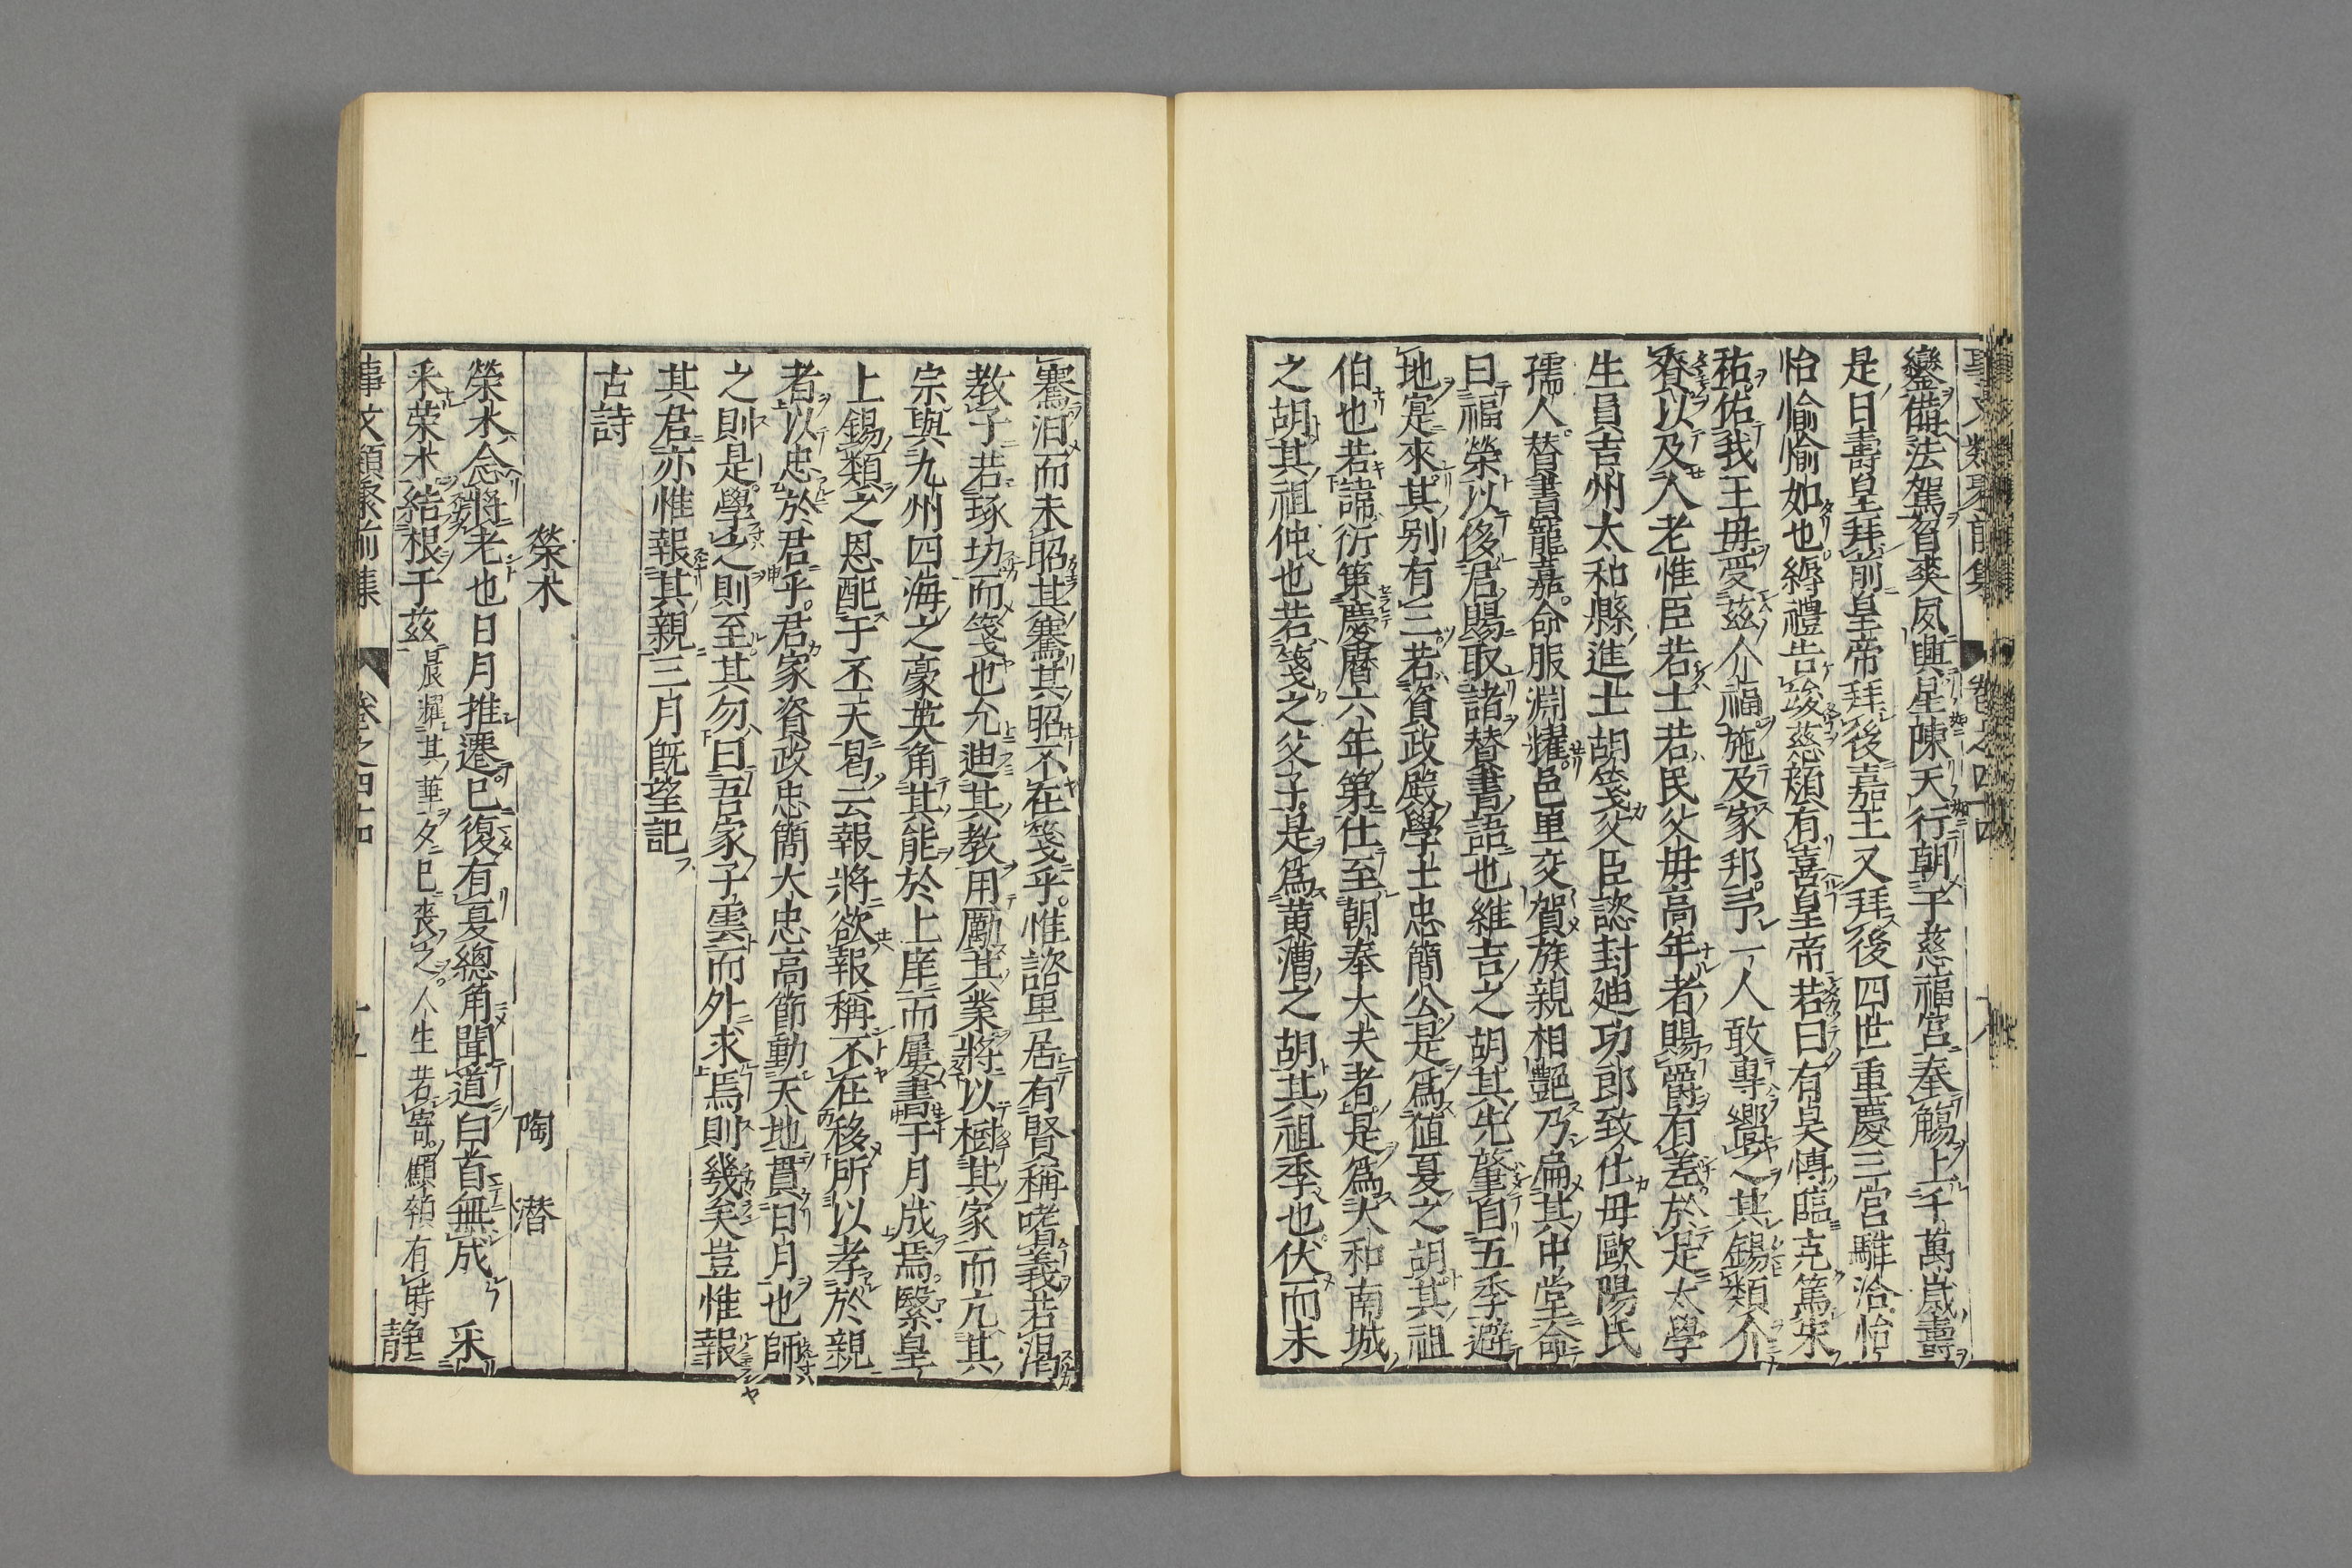 鑾備法駕習爽夙興星陳天行朝于慈福宮奉觴上千萬歲壽
是日壽皇拜前皇帝拜後嘉王又拜後四世重慶三宮驩洽怡
怡愉愉如也縟禮告竣慈顔有喜皇帝若曰有昊博臨克篤宋
祐佑我王母受茲介福施及家邦予一人敢專嚮之其錫類介
眷以及人老惟臣若士若民父母高年者賜爵有差於是太學
生員吉州太和縣進士胡箋父臣諮封廸功郎致仕母歐陽氏
孺人替書寵嘉命服淵燿邑里交賀族親相艷乃扁其中堂命
曰福榮以侈君賜取諸替書語也維吉之胡其先肇自五季避
地寔來其别有三若資政殿學士忠簡公是爲値夏之胡其祖
伯也若諱衍第慶曆六年第仕至朝奉大夫者是爲太和南城
之胡其祖仲也若箋之父子是爲黄漕之胡其祖季也伏而未
騫汨而未昭其騫其昭不在箋乎惟諮里居有賢稱嗜義若渇
教子若琢切而箋也允迪其教用勵其業將以樹其家而亢其
宗與九州四海之豪英角其能於上庠而屢書于月成焉緊皇
上錫類之恩配于丕天曷云報將欲報稱不在移所以孝於親
者以忠於君乎君家資政忠簡大忠高節動天地貫日月也師
之則是學之則至其勿曰吾家子雲而外求焉則幾矣豈惟報
其君亦惟報其親三月旣望記
古詩
榮木 陶潜
榮木念將老也日月推遷已復有夏總角聞道白首無成 采
采榮木結根于茲晨耀其華夕已喪之人生若寄顦顇有時靜
事文類聚前集 卷之四十四 十九